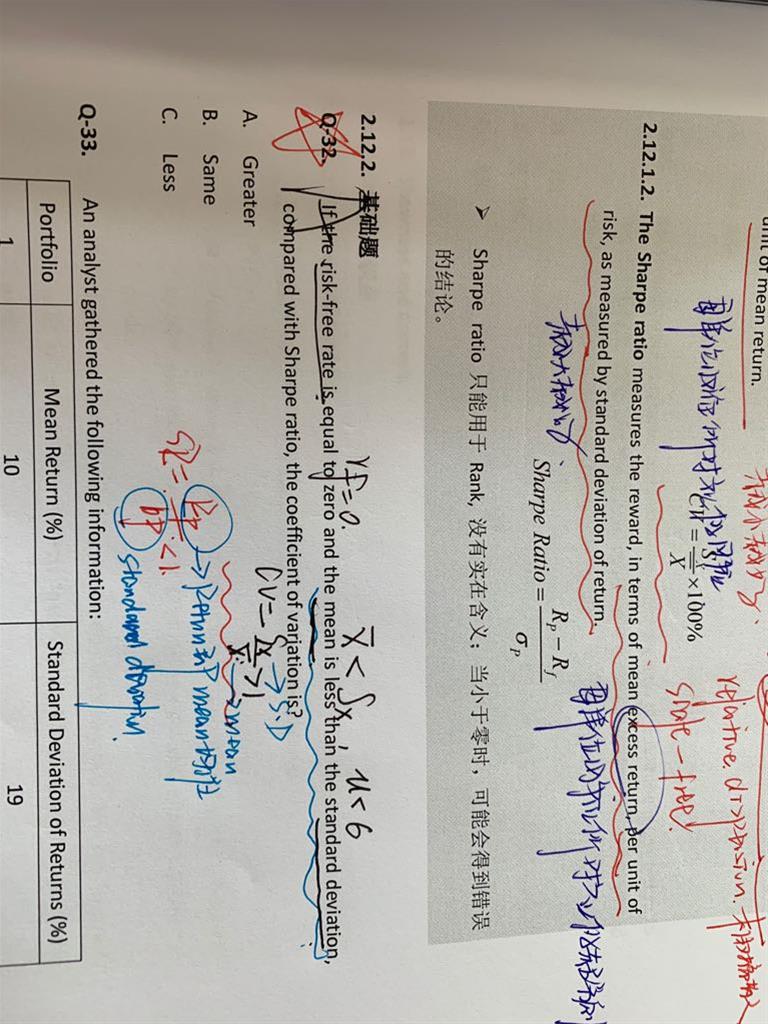 unit of mean return.
表越小越好、
relative. dispersion.
scale-free!
= S / X ×100%
2.12.1.2. The Sharpe ratio measures the reward, in terms of mean excess return, per unit of
risk, as measured by standard deviation of return.
表越大越好、
Sharpe Ratio = Rp − Rf / σp
➢ Sharpe ratio 只能用于 Rank, 没有实在含义；当小于零时，可能会得到错误
的结论。
2.12.2. 基础题
rf=0. X̄ < Sx, u<6
Q-32. If the risk-free rate is equal to zero and the mean is less than the standard deviation,
compared with Sharpe ratio, the coefficient of variation is?
CV= Sx / X̄ >1
→ S.D
→ mean
A. Greater
B. Same
C. Less
SR= Rp / 6p <1.
→ return
mean
standard deviation.
Q-33. An analyst gathered the following information:
Portfolio Mean Return (%) Standard Deviation of Returns (%)
1 10 19